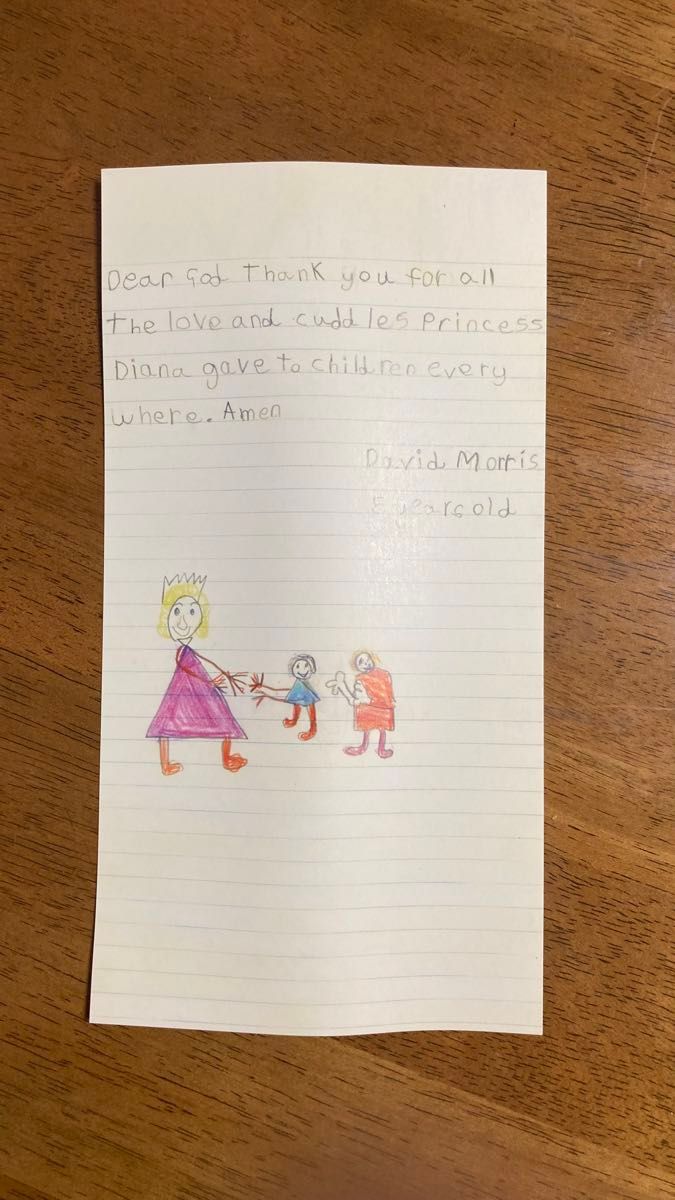 Dear God Thank you for all
the love and cuddles Princess
Diana gave to children every
where. Amen
David Morris
5 years old